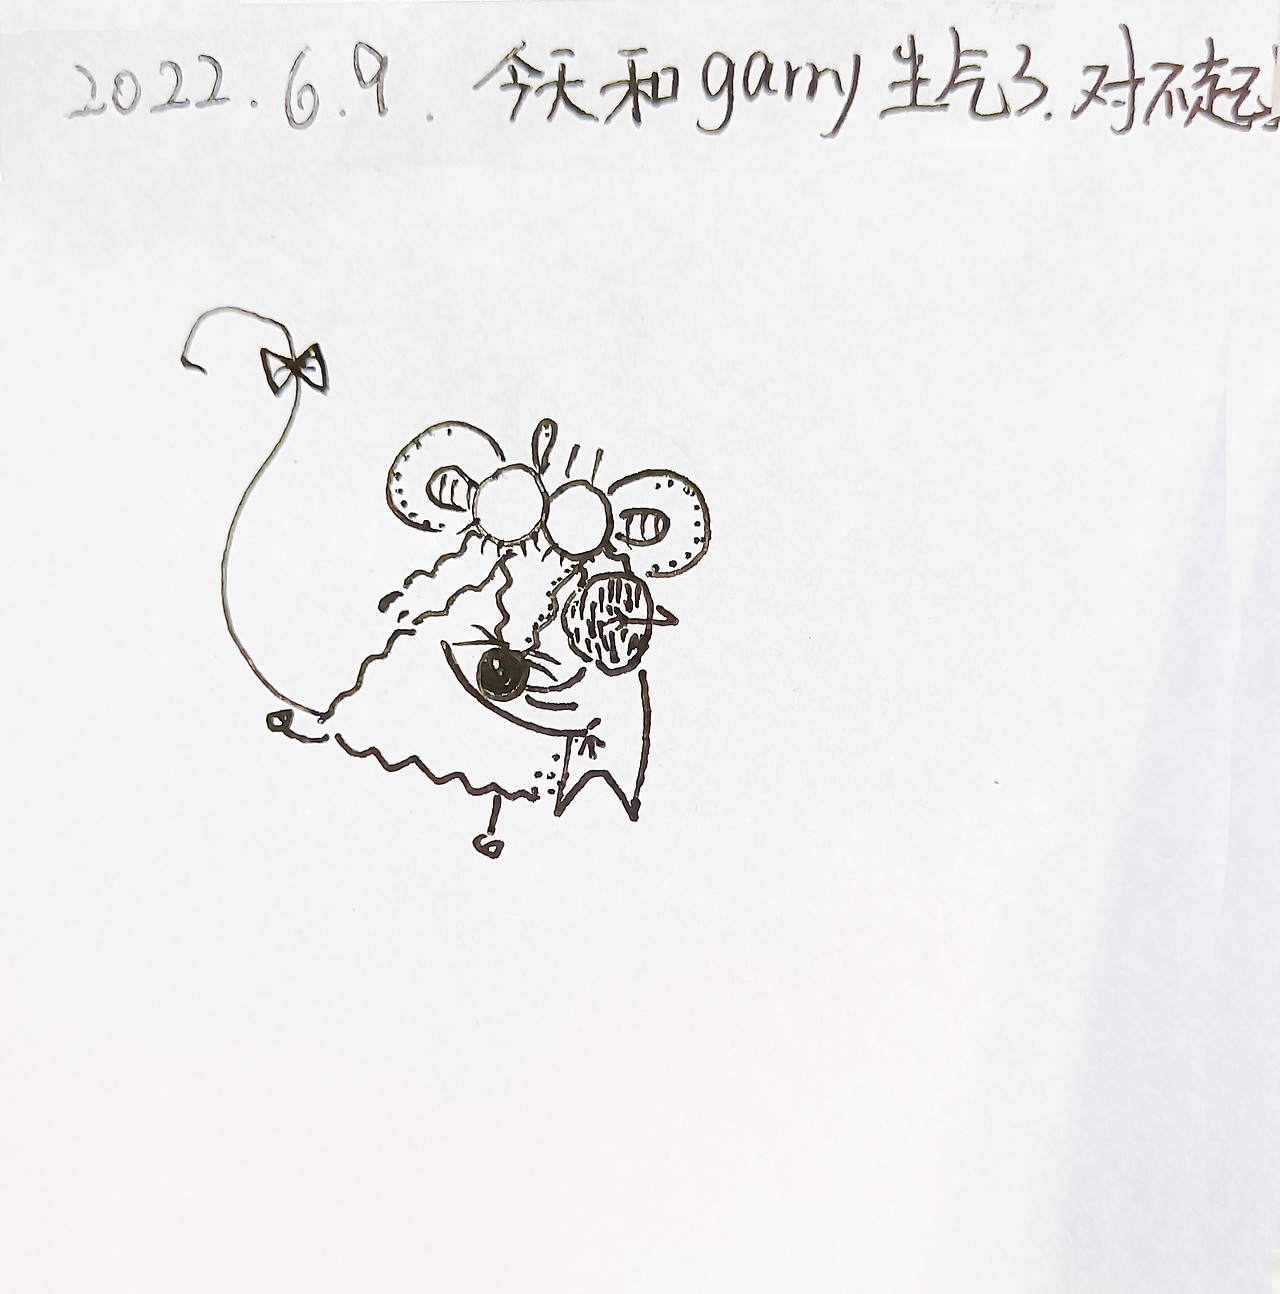 2022.6.9. 今天和garry生气了.对不起!